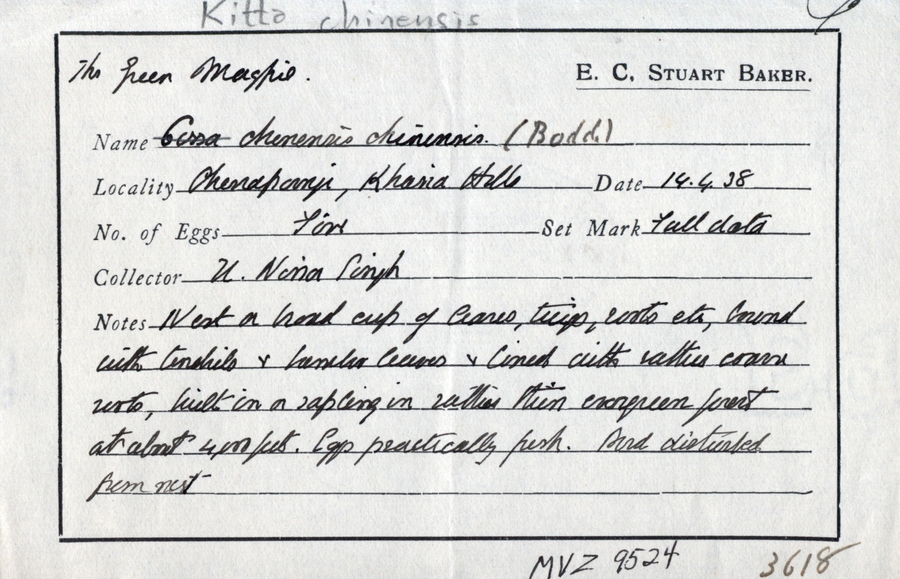 Kitta chinensis
The Green Magpie.
E. C. STUART BAKER.
Name Cissa chinensis chinensis. (Bodd)
Locality Cherrapunji, Khasia Hills Date 14.4.38
No. of Eggs Set Mark Full data
Collector U. Nina Singh
Notes Nest a broad cup of leaves, twigs, roots etc, bound
with tendrils & bamboo leaves & lined with rather coarse
roots, built in a sapling in rather thin evergreen forest
at about 4,000 feet. Eggs practically fresh. Bird disturbed
from nest
MVZ 9524
3618